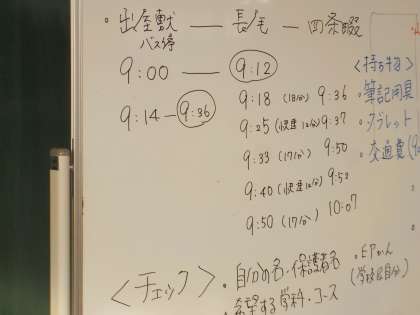 ・出屋敷 — 長尾 — 四条畷
バス停
9:00 — 9:12
9:14 — 9:36
9:18 (18分) 9:36
9:25 (快速12分) 9:37
9:33 (17分) 9:50
9:40 (快速12分) 9:52
9:50 (17分) 10:07
<持ち物>
・筆記用具
・タブレット
・交通費
<チェック>
・自分の名・保護者名
・希望する学科・コース
・EPかん
(学校&自分)